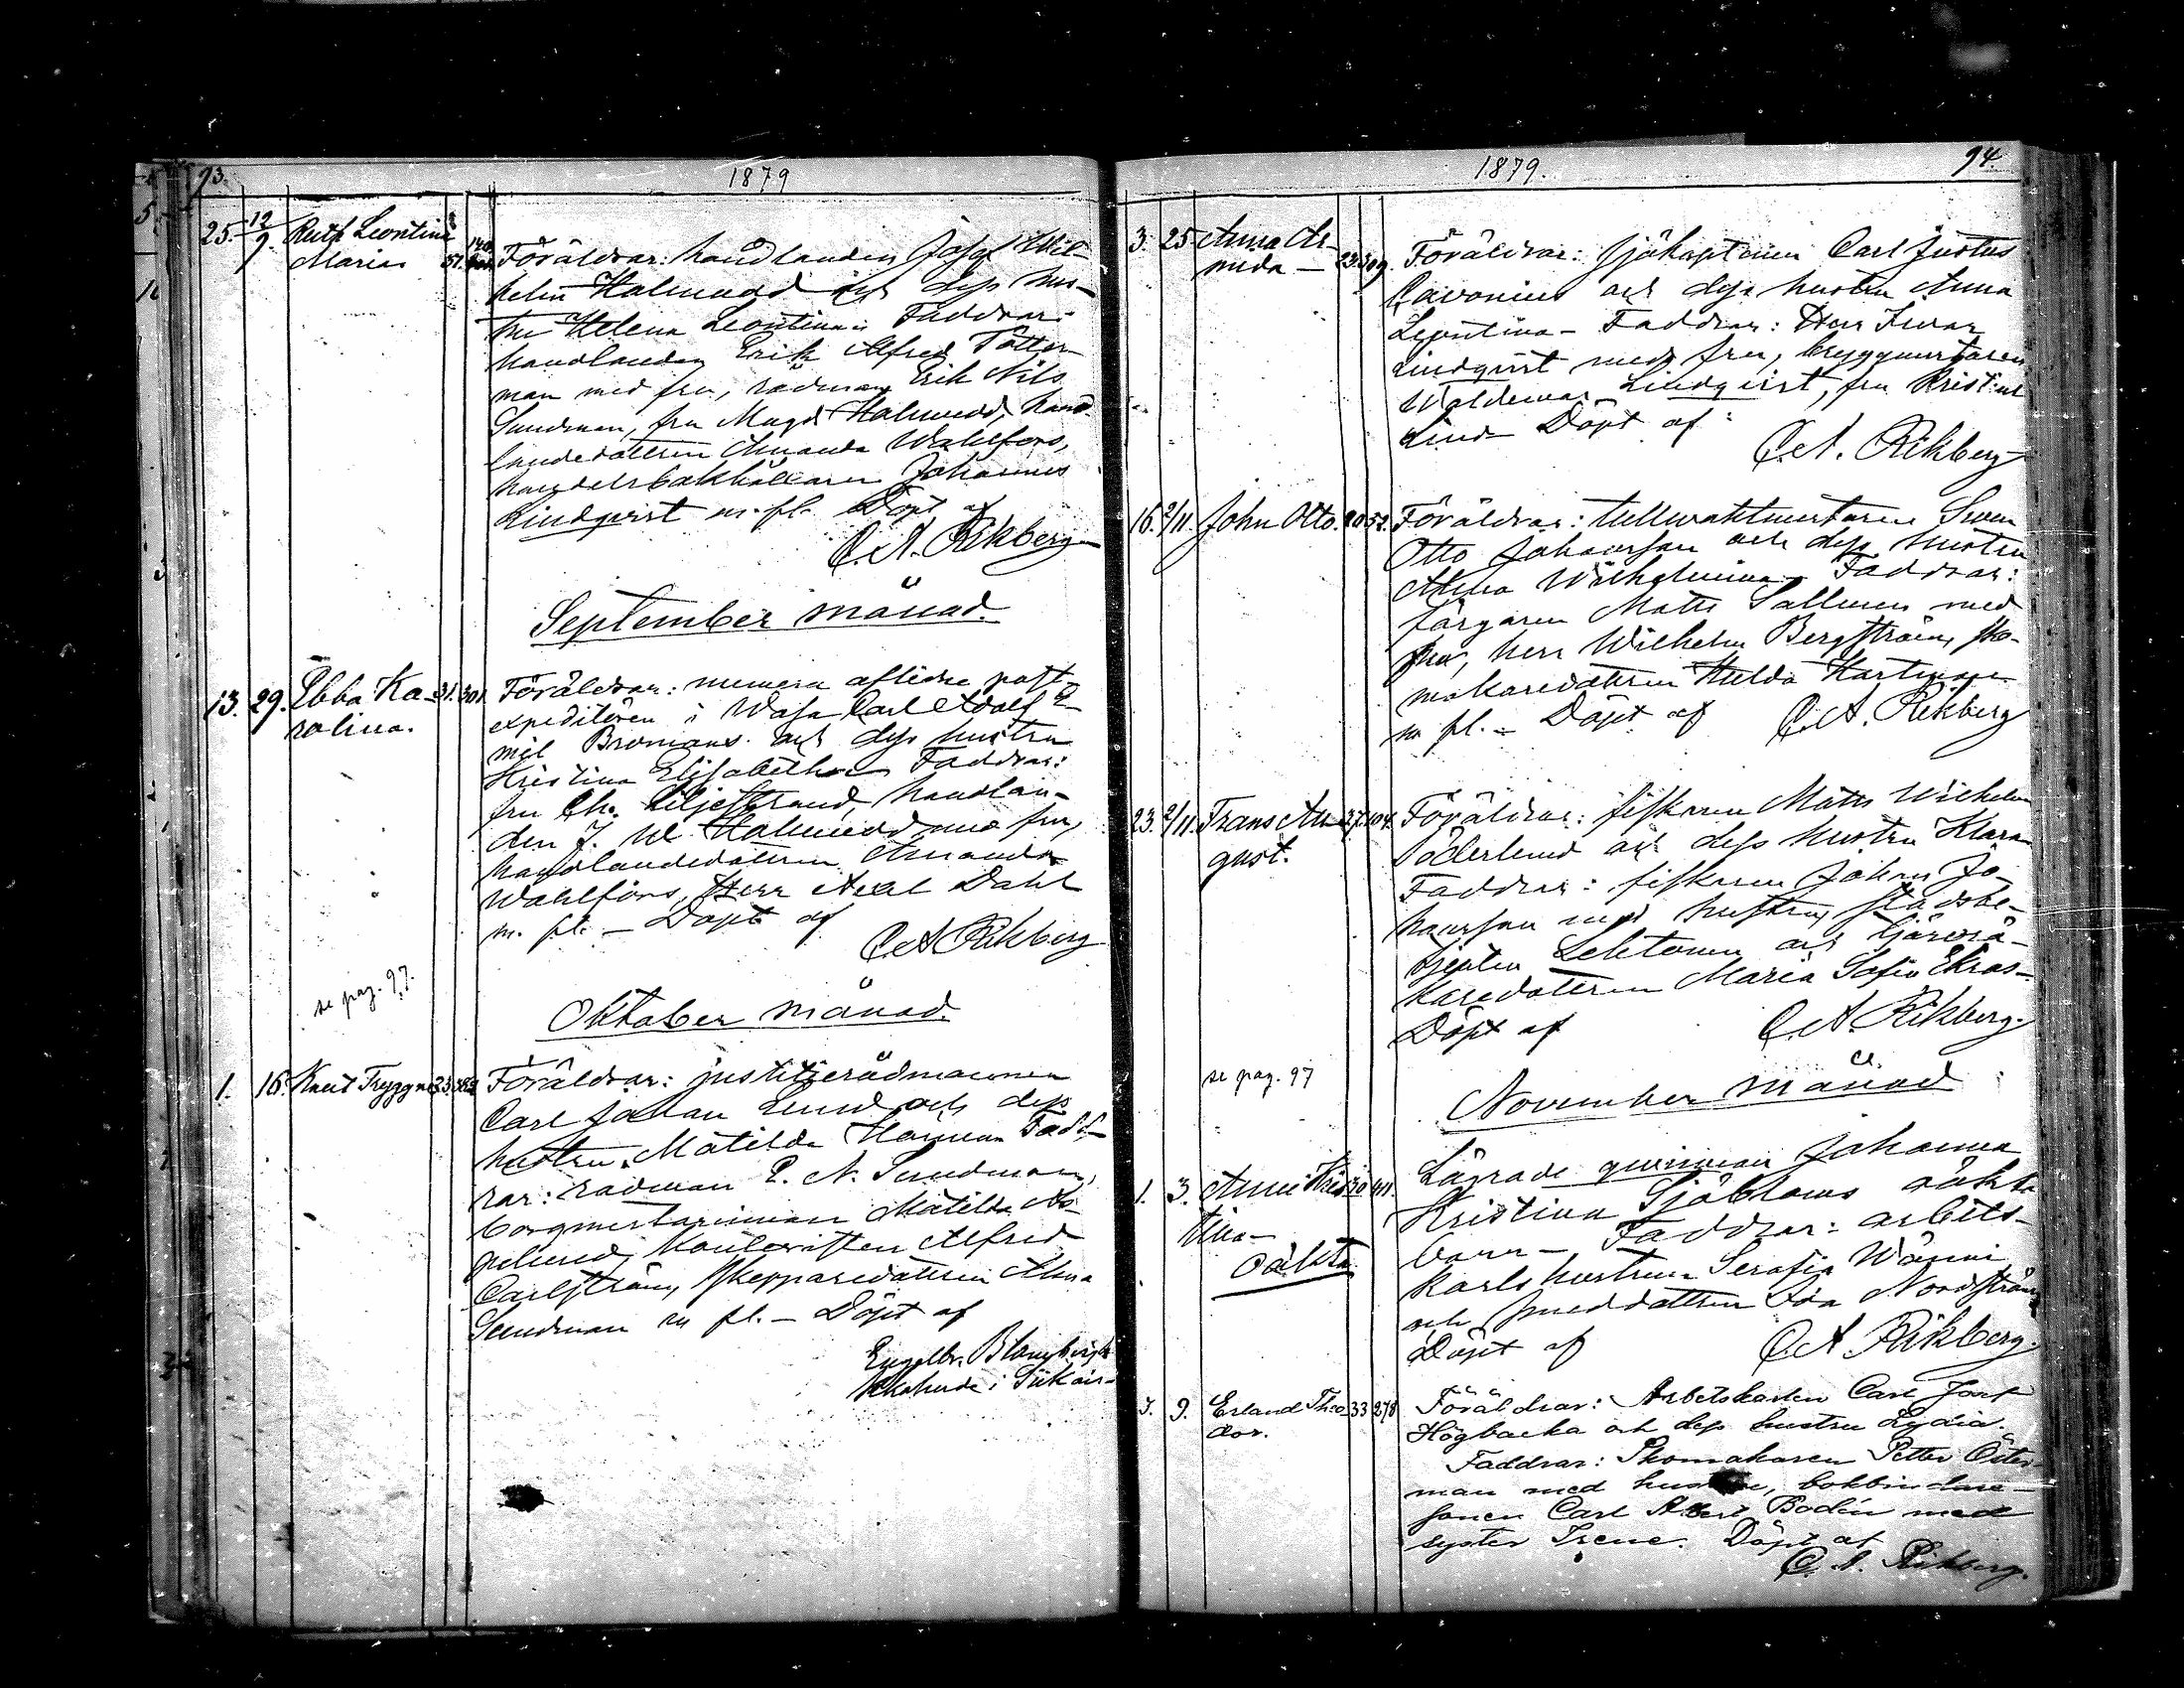 93.
1879
25. 12/9. Ruth Leontina
Maria 51.
Föräldrar: handlanden Josef Wil-
helm Holmudd och dess hus-
tru Helena Leontina. Faddrar:
handlanden Erik Alfred Tötter-
man med fru, rådman Erik Nils
Sundman, fru Magd. Holmudd, hand-
landedottren Amanda Wahlfors,
handelsbokhållaren Johannes
Lindqvist m. fl. Döpt af
C. A. Rikberg
September månad.
13. 29. Ebba Ka- 31. 301.
rolina.
Föräldrar: numera aflidne post-
expeditören i Wasa Carl Adolf E-
mil Bromans och dess hustru
Kristina Elisabeth. Faddrar:
fru Ch. Liljestrand, handlan-
den J. W. Holmudd med fru,
handlandedottren Amanda
Wahlfors, Herr Axel Dahl
m. fl. – Döpt af
C A Rikberg
se pag. 97.
Oktober månad.
1. 16. Knut Tryggve 33.
Föräldrar: justitierådmannen
Carl Johan Lund och dess
hustru Matilda. Fadd-
rar: rådman E. N. Sundman,
borgmästarinnan Matilda As-
pelund, Kontoristen Alfred
Carlström, Skepparedottren Alma
Sundman m fl. – Döpt af
Engelbr.
i Siikais-
1879.
94.
3. 25 Anna Ar-
mida – 23. 309.
Föräldrar: Sjökaptenen Carl Justus
Cavonius och dess hustru Anna
Leontina – Faddrar: Herr Ivar
Lindqvist med fru, bryggmästaren
Waldemar Lindqvist, fru Kristina
Lind Döpt af:
C. A. Rikberg
16. 2/11. John Otto. 20 52.
Föräldrar: tullvaktmästaren Sven
Otto Johansson och dess hustru
Alma Wilhelmina – Faddrar:
färgaren Matts Sallinen med
fru, herr Wilhelm Bergström, sko-
makaredottren Hulda Hartman
m fl. – Döpt af C. A. Rikberg
23. 2/11. Frans Au- 27. 104.
gust.
Föräldrar: fiskaren Matts Wilhelm
Söderlund och dess hustru Klara
Faddrar: fiskaren Johan Jo-
hansson med hustru, stadsbe-
tjenten Lehtonen och
Maria Sofia Ekroos–
Döpt af C. A. Rikberg.
se pag. 97
November månad
1. 3. Anna Kris- 30 411.
tina –
oäkta
Lägrade qvinnan Johanna
Kristina Sjöbloms oäkta
barn – Faddrar: arbets-
karls hustrun Serafia Wänni
och smeddottren Ida Nordström
Döpt af C A Rikberg.
7. 9. Erland Theo- 33 278
dor.
Föräldrar: Arbetskarlen Carl Josef
Högbacka och dess hustru Lydia.
Faddrar: Skomakaren Petter Öster-
man med hustru, bokbindare-
sonen Carl Albert Bodén med
syster Irene. Döpt af
C. A. Rikberg.